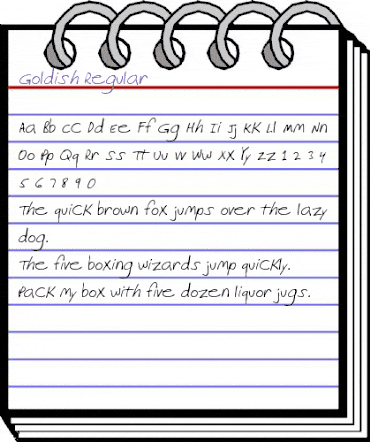 Goldish Regular
Aa Bb CC Dd Ee Ff Gg Hh Ii Jj KK Ll MM Nn
Oo Pp Qq Rr SS Tt Uu VV Ww XX Yy ZZ 1 2 3 4
5 6 7 8 9 0
The quiCK brown fox jumps over the lazy
dog.
The five boxing wizards jump quiCKly.
PaCK My box with five dozen liquor jugs.